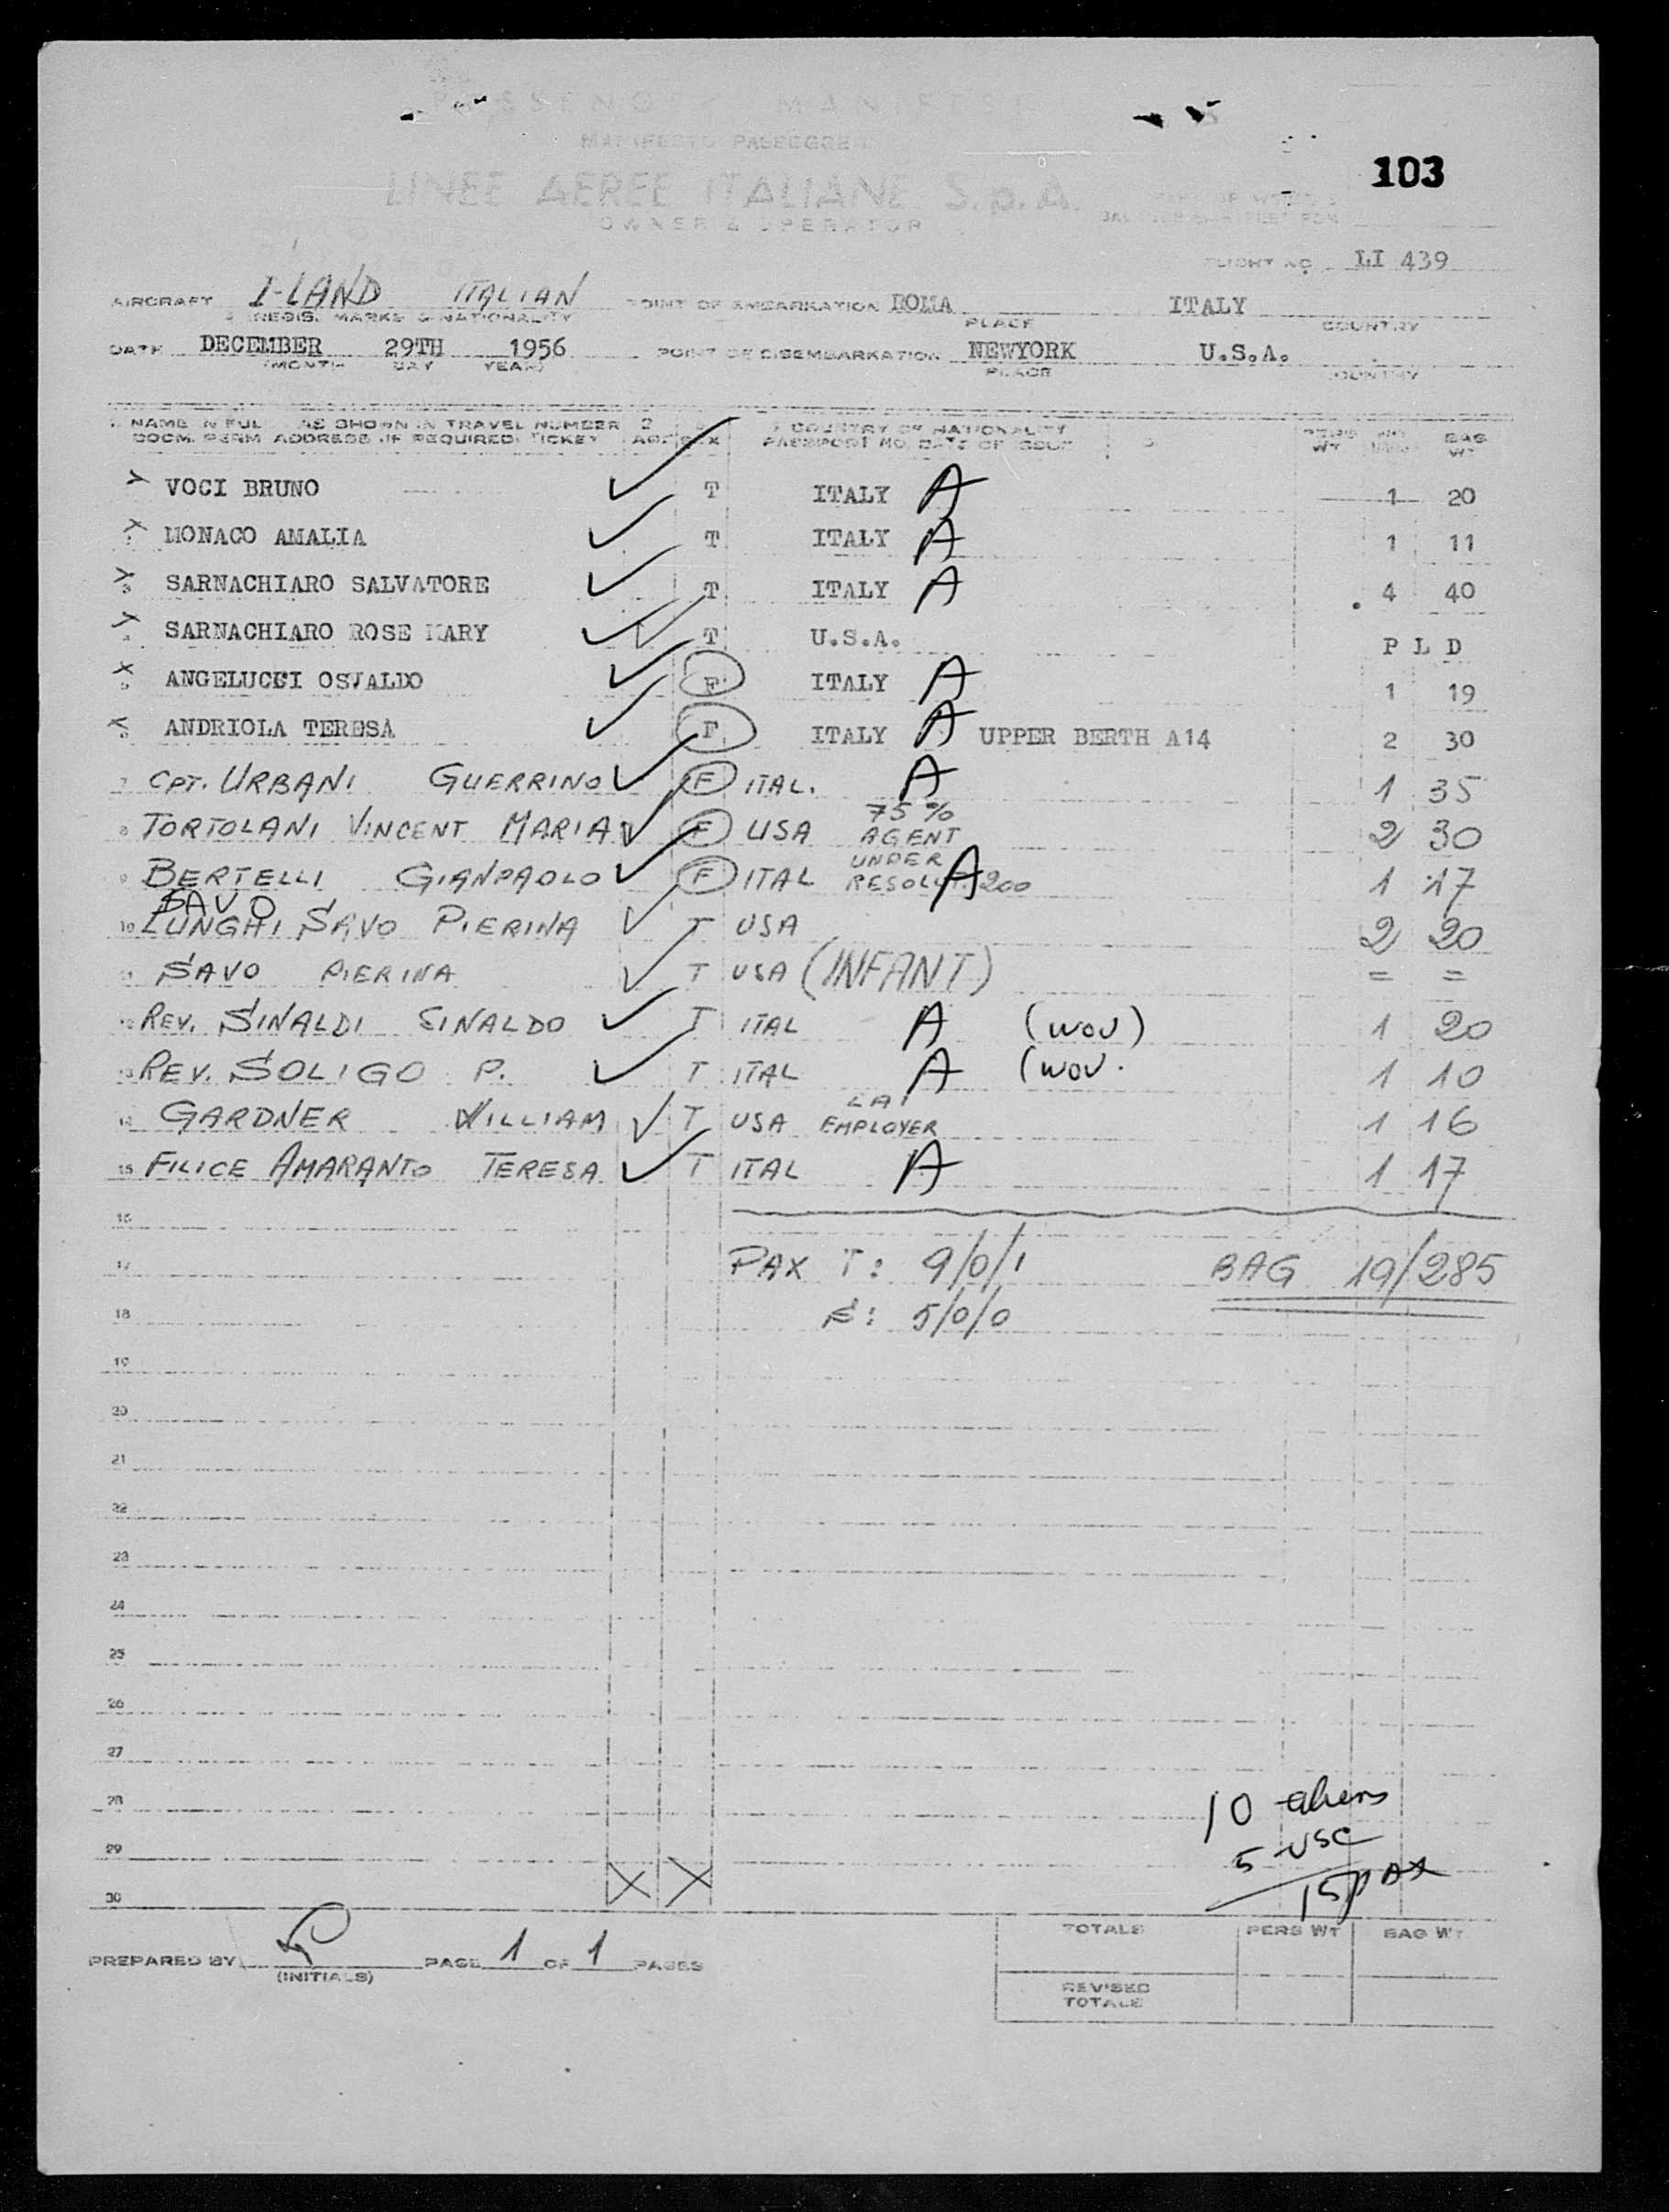 PASSENGER MANIFEST
MANIFESTO PASSEGGERI
103
LINEE AEREE ITALIANE S.p.A.
OWNER & OPERATOR
FLIGHT NO LI 439
AIRCRAFT I-LAND ITALIAN POINT OF EMBARKATION ROMA ITALY
REGIS. MARKS & NATIONALITY PLACE COUNTRY
DATE DECEMBER 29TH 1956 POINT OF DISEMBARKATION NEWYORK U.S.A.
(MONTH DAY YEAR) PLACE COUNTRY
NAME IN FULL AS SHOWN IN TRAVEL NUMBER 2 COUNTRY OF NATIONALITY PERS BAG
DOCM. PERM ADDRESS IF REQUIRED TICKET AGE SEX PASSPORT NO. DATE OF ISSUE WT WT
VOCI BRUNO T ITALY A 1 20
MONACO AMALIA T ITALY A 1 11
SARNACHIARO SALVATORE T ITALY A 4 40
SARNACHIARO ROSE MARY T U.S.A. P L D
ANGELUCCI OSVALDO F ITALY A 1 19
ANDRIOLA TERESA F ITALY A UPPER BERTH A14 2 30
7 CPT. URBANI GUERRINO F ITAL. A 1 35
75 %
8 TORTOLANI VINCENT MARIA F USA AGENT 2 30
UNDER
9 BERTELLI GIANPAOLO F ITAL RESOLUT. A 200 1 17
SAVO
10 LUNGHI SAVO PIERINA T USA 2 20
11 SAVO PIERINA T USA (INFANT) = =
12 REV. SINALDI SINALDO T ITAL A (WOV) 1 20
13 REV. SOLIGO P. T ITAL A (WOV. 1 10
LAI
14 GARDNER WILLIAM T USA EMPLOYER 1 16
15 FILICE AMARANTO TERESA T ITAL A 1 17
16
17 PAX T: 9/0/1 BAG 19/285
18 F: 5/0/0
19
20
21
22
23
24
25
26
27
28 10 aliens
29 5 USC
30 15 pax
PREPARED BY (INITIALS) PAGE 1 OF 1 PAGES
TOTALS PERS WT BAG WT
REVISED
TOTALS